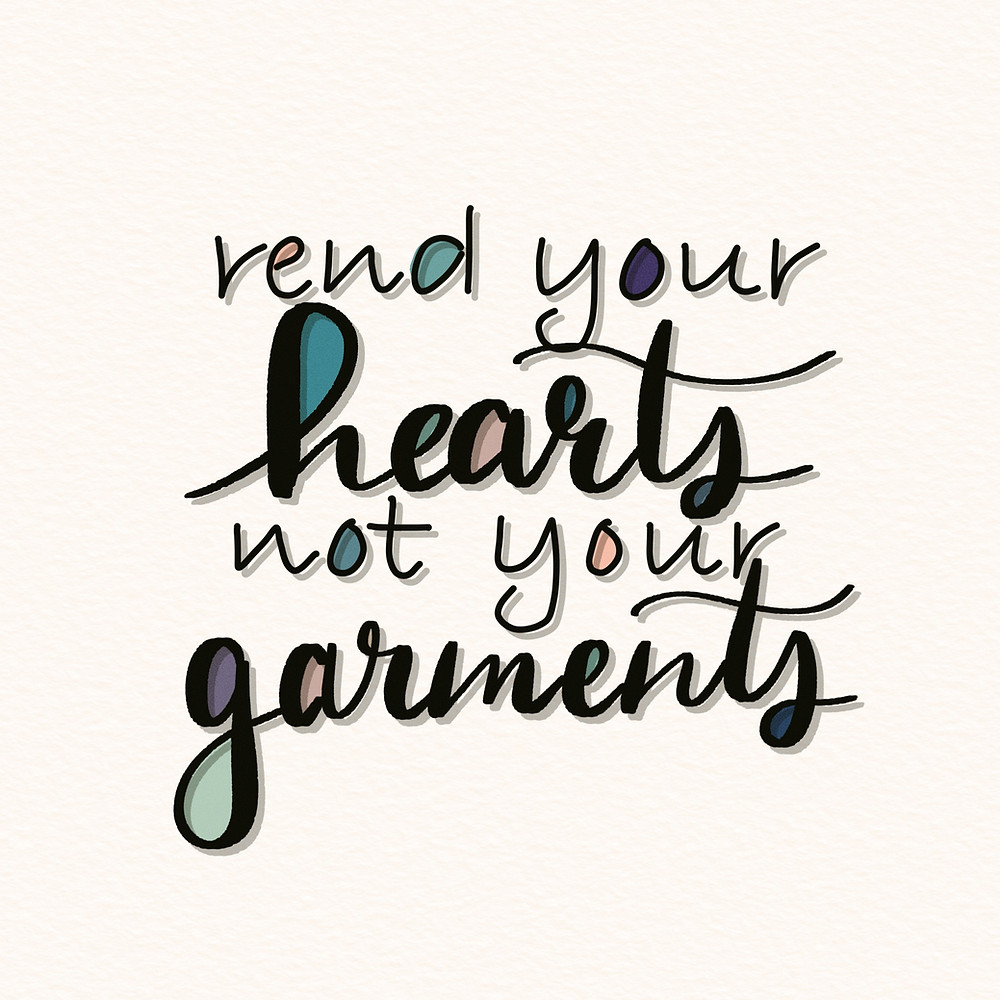 rend your
hearts
not your
garments